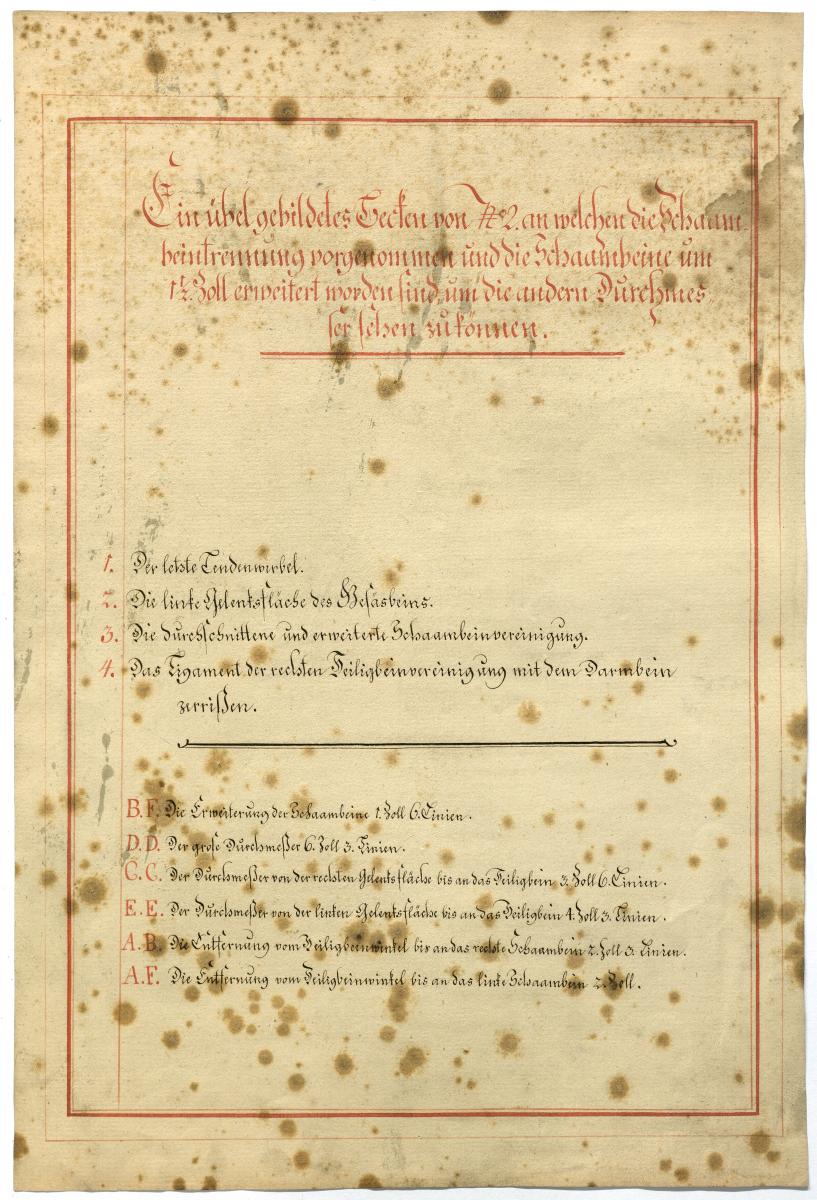 Ein übel gebildetes Becken von № 2. an welchen die Schaam-
beintrennung vorgenommen und die Schaambeine um
1½ Zoll erweitert worden sind, um die andern Durchmes-
ser sehen zu können.
1. Der letzte Lendenwirbel.
2. Die linke Gelenksfläche des Gesäsbeins.
3. Die durchschnittene und erweiterte Schaambeinvereinigung.
4. Das Ligament der rechten Heiligbeinvereinigung mit dem Darmbein
zerrißen.
B. F. Die Erweiterung der Schaambeine 1. Zoll 6. Linien.
D. D. Der grose Durchmeßer 6. Zoll 3. Linien.
C. C. Der Durchmeßer von der rechten Gelenksfläche bis an das Heiligbein 3. Zoll 6. Linien.
E. E. Der Durchmeßer von der linken Gelenksfläche bis an das Heiligbein 4. Zoll 3. Linien.
A. B. Die Entfernung vom Heiligbeinwinkel bis an das rechte Schaambein 2. Zoll 3. Linien.
A. F. Die Entfernung vom Heiligbeinwinkel bis an das linke Schaambein 2. Zoll.